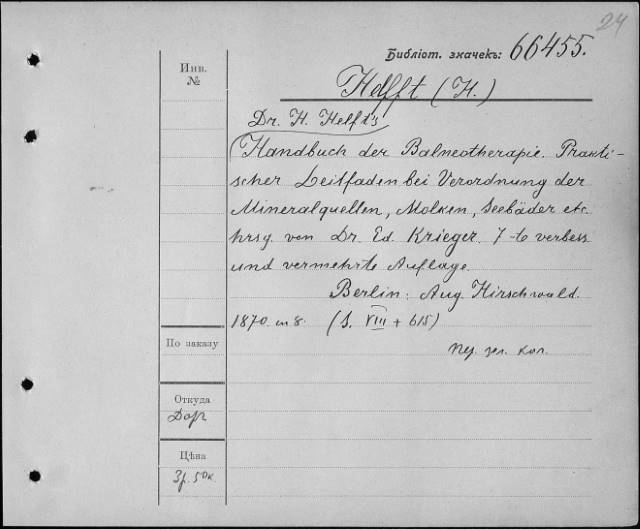 24
Библіот. значекъ: 66455.
Инв.
№
Helfft (H.)
Dr. H. Helft's
Handbuch der Balneotherapie. Prakti-
scher Leitfaden bei Verordnung der
Mineralquellen, Molken, Seebäder etc.
hrsg. von Dr. Ed. Krieger. 7-te verbess
und vermehrte Auflage.
Berlin: Aug. Hirschwald.
1870. in 8. (S. VIII + 615)
По заказу
пер. зел. кол.
Откуда
Дар
Цѣна
3р. 50к.